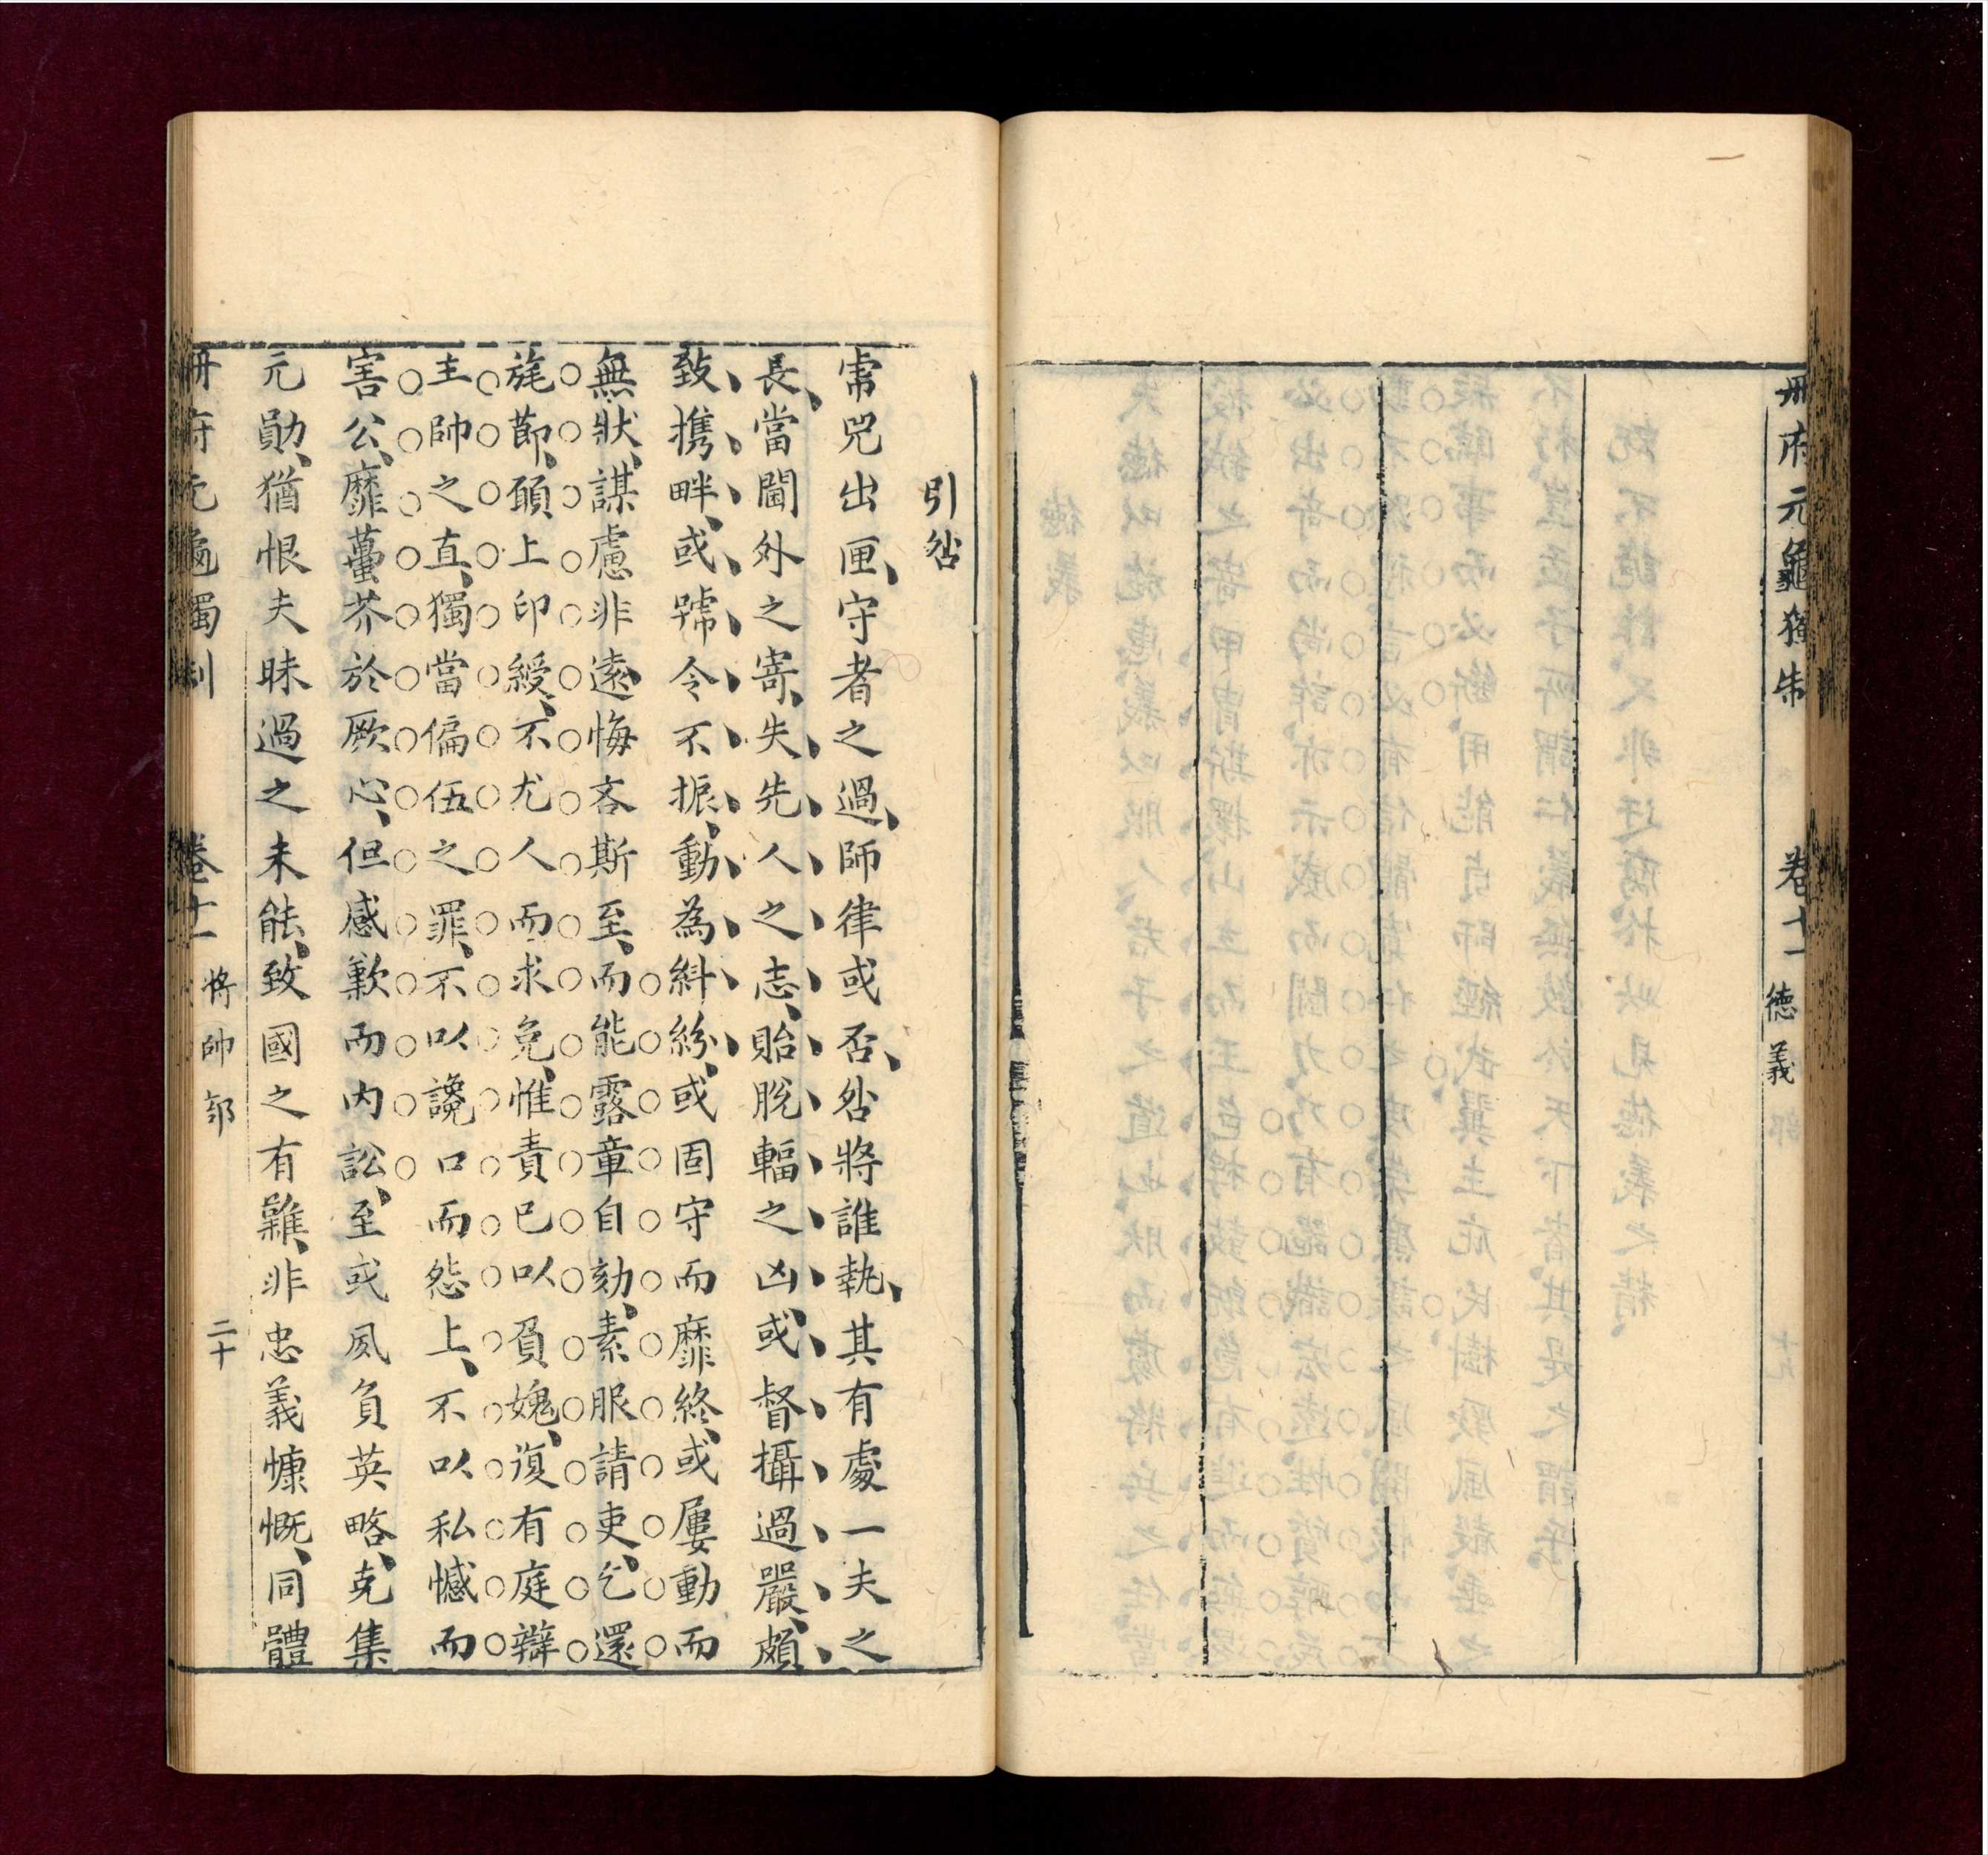 冊府元龜獨制 卷十一 德義
引咎
兕出匣、守者之過、師律或否、咎將誰執、其有處一夫之
長、當閫外之寄、失先人之志、貽脫輻之凶、或督攝過嚴、頗
致攜畔、或號令不振、動為糾紛、或固守而靡終、或屢動而
無狀、謀慮非遠、悔吝斯至、而能露章自劾、素服請吏、乞還
旄節、願上印綬、不尤人而求免、惟責己以負媿、復有庭辯
主帥之直、獨當偏伍之罪、不以讒口而怨上、不以私憾而
害公、靡蠆芥於厥心、但感歎而內訟、至或夙負英略、克集
元勛、猶恨夫昧過之未能、致國之有難、非忠義慷慨、同體
冊府元龜獨制 卷十一 將帥部 二十